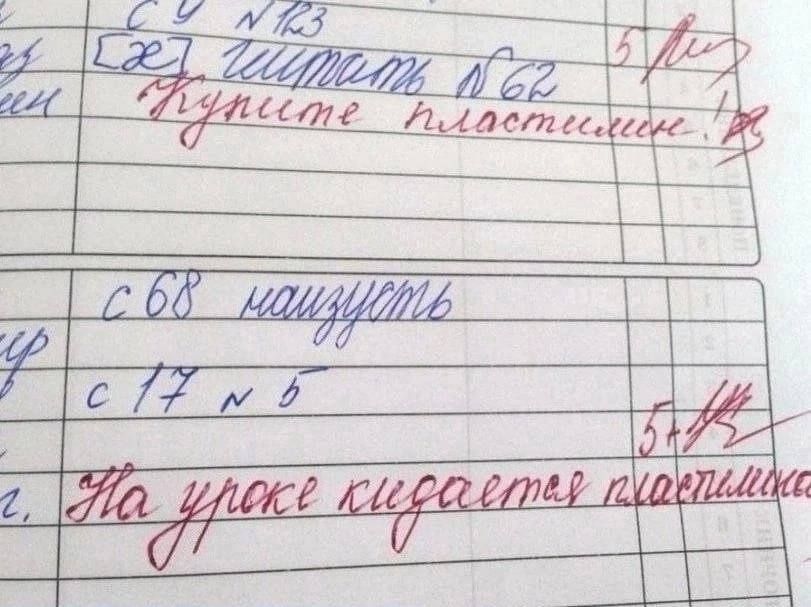 с 9 №123
[æ] читать №62 5
Купите пластилин!
с 68 наизусть
с 17 № 5
5+
г. На уроке кидается пластилино